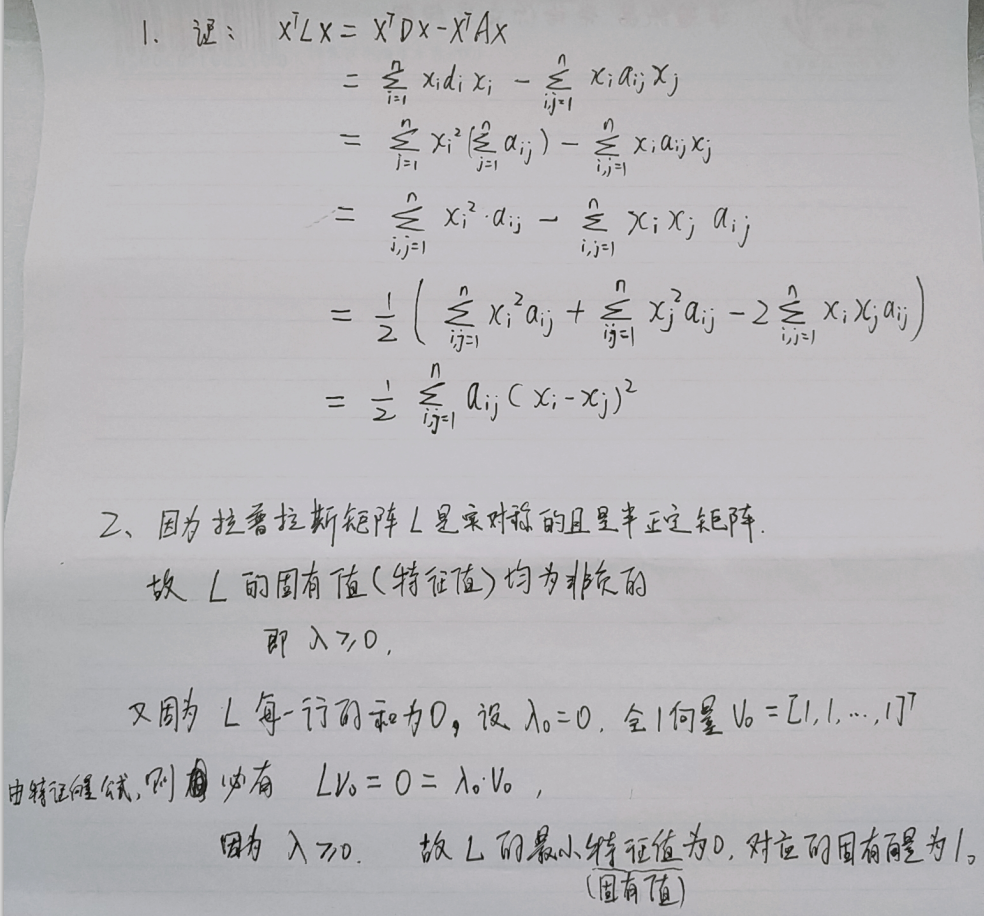 1. 证： xᵀLx = xᵀDx - xᵀAx
= ∑_{i=1}^{n} x_i d_i x_i - ∑_{i,j=1}^{n} x_i a_{ij} x_j
= ∑_{i=1}^{n} x_i² (∑_{j=1}^{n} a_{ij}) - ∑_{i,j=1}^{n} x_i a_{ij} x_j
= ∑_{i,j=1}^{n} x_i² · a_{ij} - ∑_{i,j=1}^{n} x_i x_j a_{ij}
= 1/2 ( ∑_{i,j=1}^{n} x_i² a_{ij} + ∑_{i,j=1}^{n} x_j² a_{ij} - 2 ∑_{i,j=1}^{n} x_i x_j a_{ij} )
= 1/2 ∑_{i,j=1}^{n} a_{ij} (x_i - x_j)²
2、因为拉普拉斯矩阵L是实对称的且是半正定矩阵.
故 L 的固有值(特征值)均为非负的
即 λ≥0,
又因为 L 每一行的和为0, 设 λ₀=0. 全1向量 V₀=[1,1,…,1]ᵀ
由特征向量公式, 则必有 LV₀ = 0 = λ₀·V₀ ,
因为 λ≥0. 故 L 的最小特征值为0, 对应的固有向量为1。
(固有值)